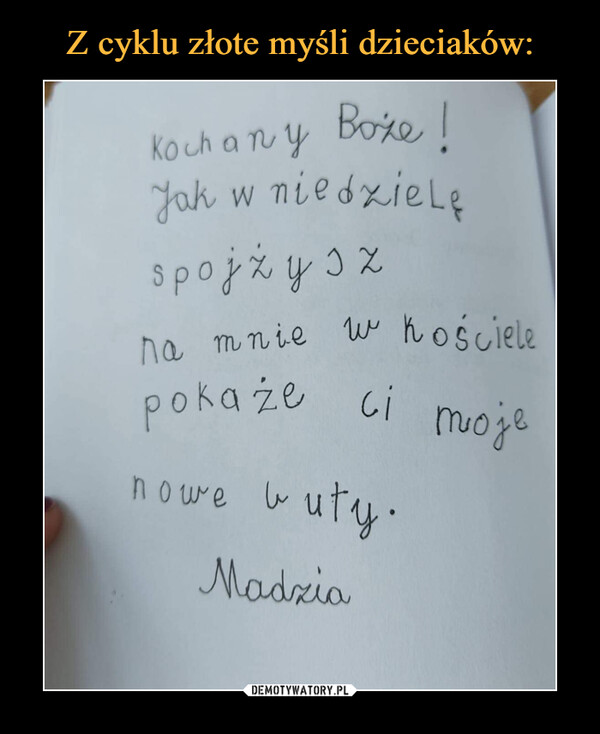 Z cyklu złote myśli dzieciaków:
Kochany Boże!
Jak w niedzielę
spojżysz
na mnie w kościele
pokaże ci moje
nowe buty.
Madzia
DEMOTYWATORY.PL